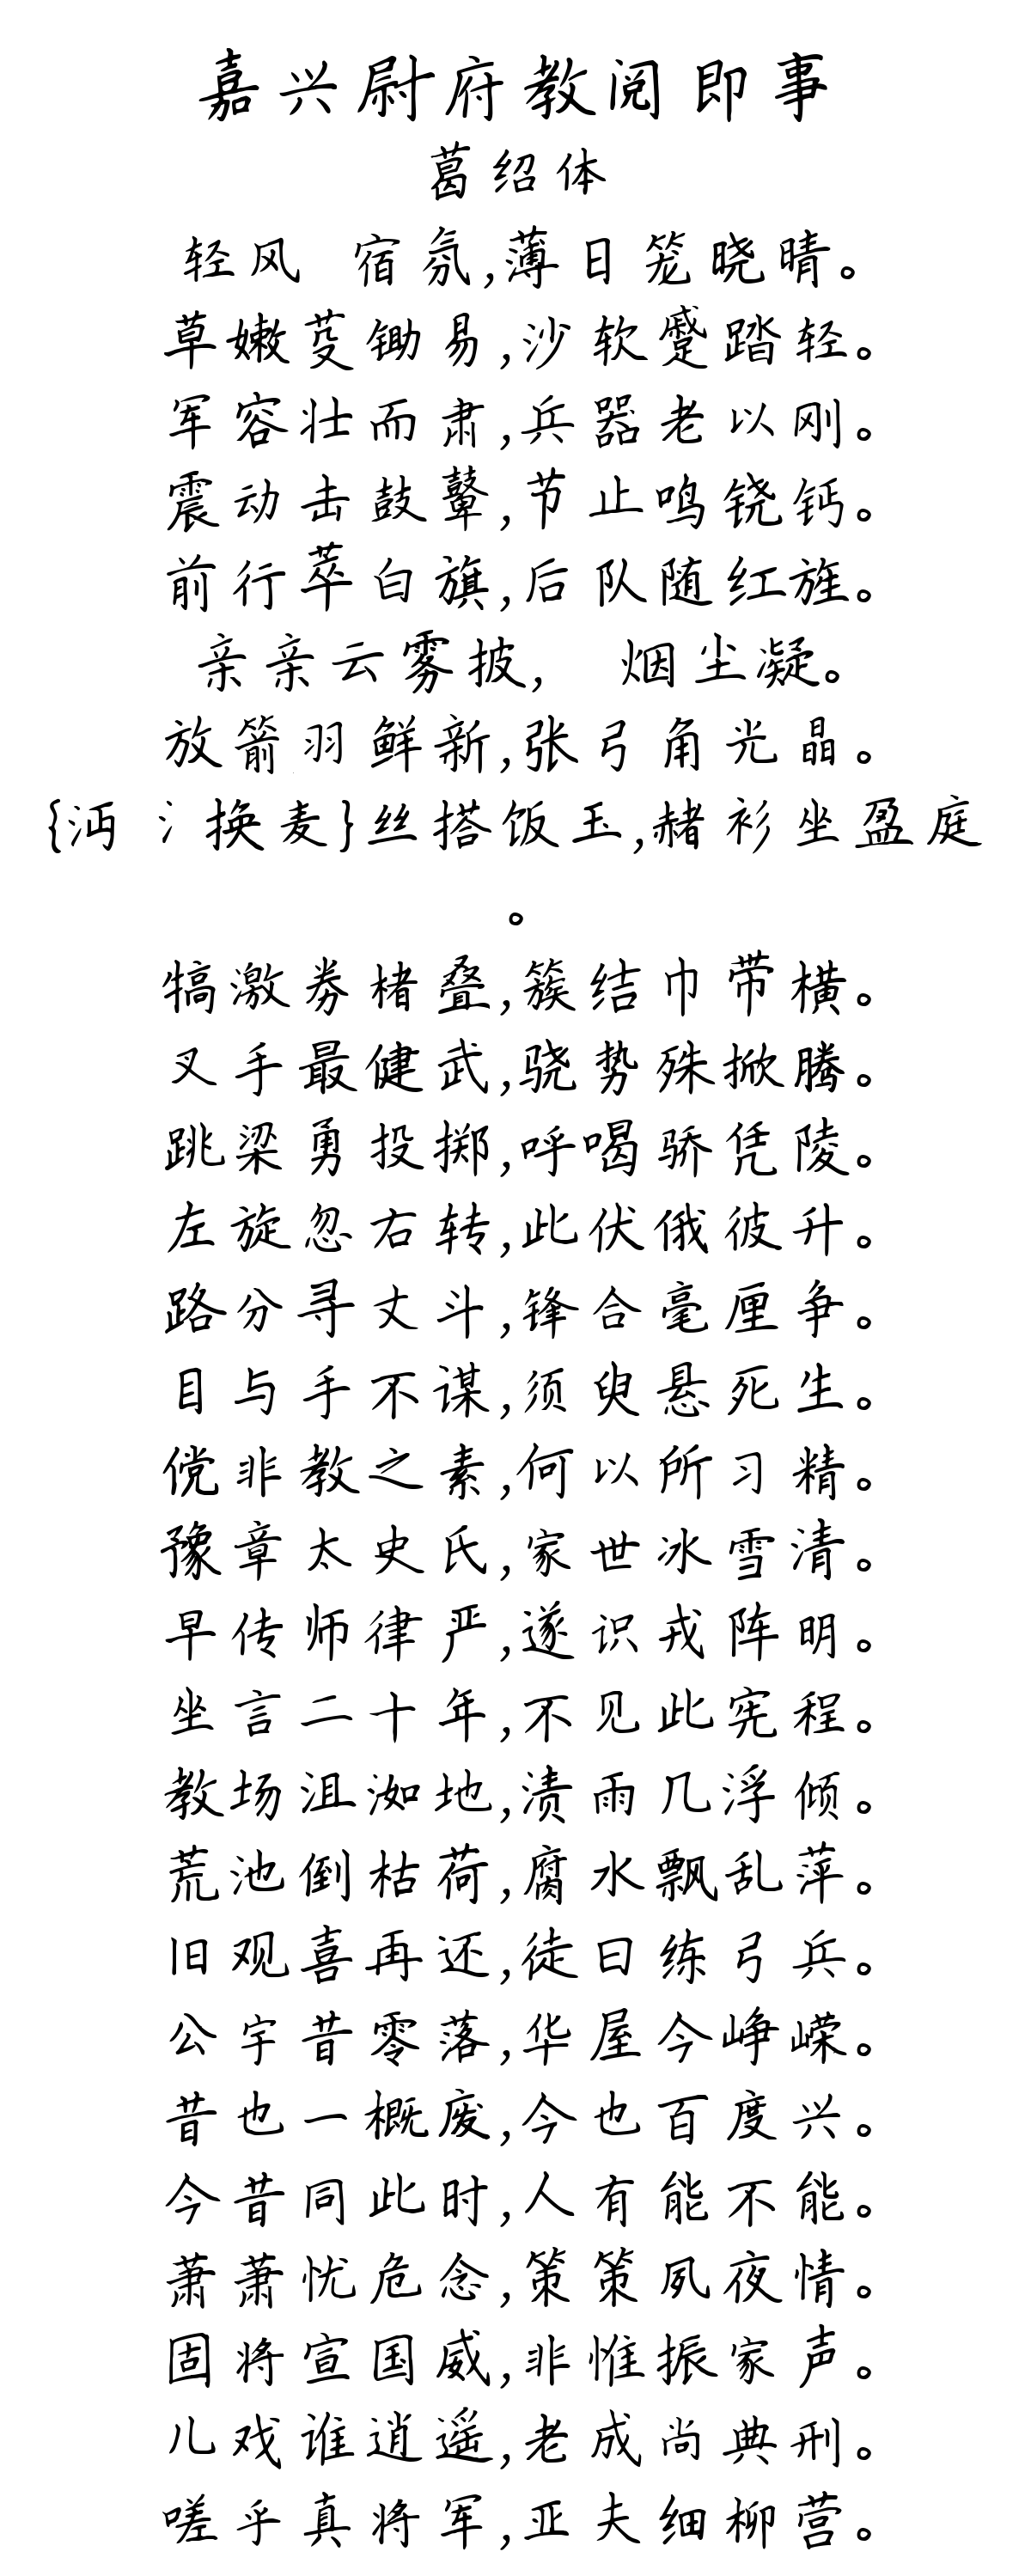 嘉兴尉府教阅即事
葛绍体
轻风 宿氛,薄日笼晓晴。
草嫩芟锄易,沙软蹙踏轻。
军容壮而肃,兵器老以刚。
震动击鼓鼙,节止鸣铙钙。
前行萃白旗,后队随红旌。
亲亲云雾披, 烟尘凝。
放箭羽鲜新,张弓角光晶。
{沔氵换麦}丝搭饭玉,赭衫坐盈庭
。
犒激券楮叠,簇结巾带横。
叉手最健武,骁势殊掀腾。
跳梁勇投掷,呼喝骄凭陵。
左旋忽右转,此伏俄彼升。
路分寻丈斗,锋合毫厘争。
目与手不谋,须臾悬死生。
傥非教之素,何以所习精。
豫章太史氏,家世冰雪清。
早传师律严,遂识戎阵明。
坐言二十年,不见此宪程。
教场沮洳地,渍雨几浮倾。
荒池倒枯荷,腐水飘乱萍。
旧观喜再还,徒曰练弓兵。
公宇昔零落,华屋今峥嵘。
昔也一概废,今也百度兴。
今昔同此时,人有能不能。
萧萧忧危念,策策夙夜情。
固将宣国威,非惟振家声。
儿戏谁逍遥,老成尚典刑。
嗟乎真将军,亚夫细柳营。